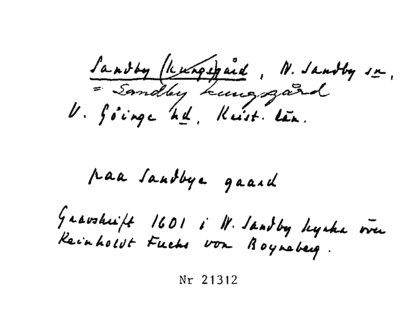 Sandby (kungs)gård, N. Sandby sn,
= Sandby kungsgård
V. Göinge hd, Krist. län.
paa Sandbye gaard
Gravskrift 1601 i N. Sandby kyrka över
Reinholdt Fuchs von Boyneberg.
Nr 21312